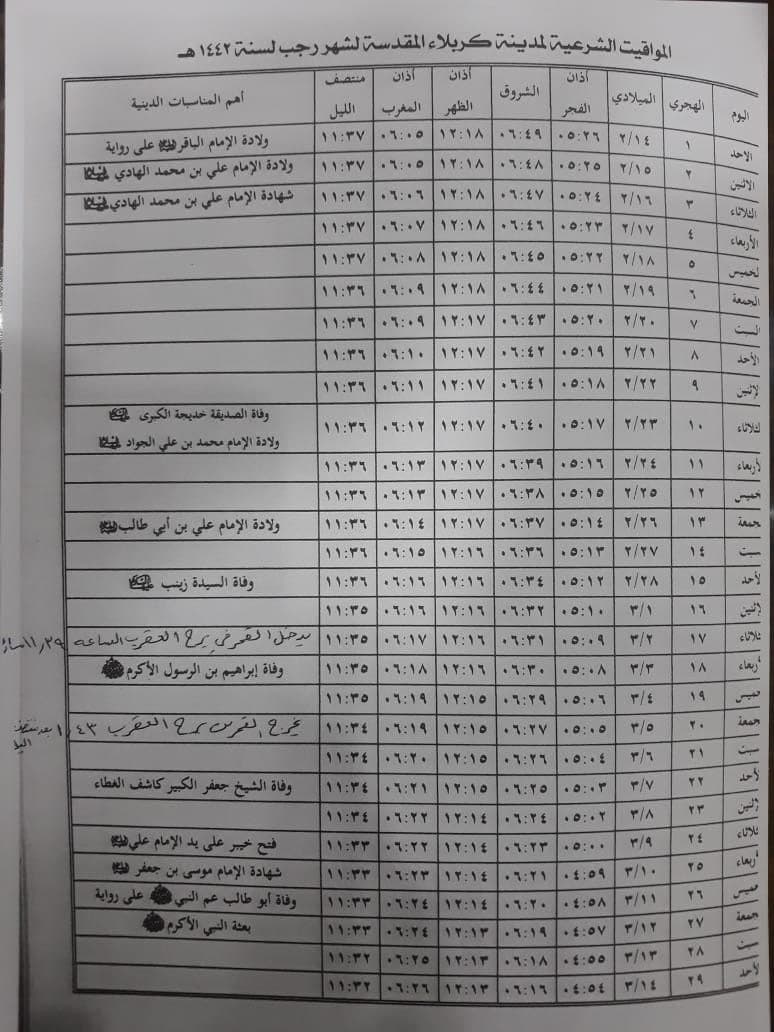 المواقيت الشرعية لمدينة كربلاء المقدسة لشهر رجب لسنة ١٤٤٢ هـ
اليوم الهجري الميلادي أذان الفجر الشروق أذان الظهر أذان المغرب منتصف الليل أهم المناسبات الدينية
الاحد ١ ٢/١٤ ٠٥:٢٦ ٠٦:٤٩ ١٢:١٨ ٠٦:٠٥ ١١:٣٧ ولادة الإمام الباقر على رواية
الاثنين ٢ ٢/١٥ ٠٥:٢٥ ٠٦:٤٨ ١٢:١٨ ٠٦:٠٥ ١١:٣٧ ولادة الإمام علي بن محمد الهادي
الثلاثاء ٣ ٢/١٦ ٠٥:٢٤ ٠٦:٤٧ ١٢:١٨ ٠٦:٠٦ ١١:٣٧ شهادة الإمام علي بن محمد الهادي
الأربعاء ٤ ٢/١٧ ٠٥:٢٣ ٠٦:٤٦ ١٢:١٨ ٠٦:٠٧ ١١:٣٧
لخميس ٥ ٢/١٨ ٠٥:٢٢ ٠٦:٤٥ ١٢:١٨ ٠٦:٠٨ ١١:٣٧
الجمعة ٦ ٢/١٩ ٠٥:٢١ ٠٦:٤٤ ١٢:١٨ ٠٦:٠٩ ١١:٣٦
السبت ٧ ٢/٢٠ ٠٥:٢٠ ٠٦:٤٣ ١٢:١٧ ٠٦:٠٩ ١١:٣٦
الأحد ٨ ٢/٢١ ٠٥:١٩ ٠٦:٤٢ ١٢:١٧ ٠٦:١٠ ١١:٣٦
لإثنين ٩ ٢/٢٢ ٠٥:١٨ ٠٦:٤١ ١٢:١٧ ٠٦:١١ ١١:٣٦
لثلاثاء ١٠ ٢/٢٣ ٠٥:١٧ ٠٦:٤٠ ١٢:١٧ ٠٦:١٢ ١١:٣٦ وفاة الصديقة خديجة الكبرى
ولادة الإمام محمد بن علي الجواد
لأربعاء ١١ ٢/٢٤ ٠٥:١٦ ٠٦:٣٩ ١٢:١٧ ٠٦:١٣ ١١:٣٦
خميس ١٢ ٢/٢٥ ٠٥:١٥ ٠٦:٣٨ ١٢:١٧ ٠٦:١٣ ١١:٣٦
جمعة ١٣ ٢/٢٦ ٠٥:١٤ ٠٦:٣٧ ١٢:١٧ ٠٦:١٤ ١١:٣٦ ولادة الإمام علي بن أبي طالب
سبت ١٤ ٢/٢٧ ٠٥:١٣ ٠٦:٣٦ ١٢:١٦ ٠٦:١٥ ١١:٣٦
لأحد ١٥ ٢/٢٨ ٠٥:١٢ ٠٦:٣٤ ١٢:١٦ ٠٦:١٦ ١١:٣٦ وفاة السيدة زينب
لإثنين ١٦ ٣/١ ٠٥:١٠ ٠٦:٣٢ ١٢:١٦ ٠٦:١٦ ١١:٣٥
ثلاثاء ١٧ ٣/٢ ٠٥:٠٩ ٠٦:٣١ ١٢:١٦ ٠٦:١٧ ١١:٣٥ يدخل القمر في برج العقرب الساعه ١١,٢٩ مساءً
أربعاء ١٨ ٣/٣ ٠٥:٠٨ ٠٦:٣٠ ١٢:١٦ ٠٦:١٨ ١١:٣٥ وفاة إبراهيم بن الرسول الأكرم
خميس ١٩ ٣/٤ ٠٥:٠٦ ٠٦:٢٩ ١٢:١٥ ٠٦:١٩ ١١:٣٥
جمعة ٢٠ ٣/٥ ٠٥:٠٥ ٠٦:٢٧ ١٢:١٥ ٠٦:١٩ ١١:٣٤ يخرج القمر من برج العقرب ١,٤٣ بعد منتصف الليل
سبت ٢١ ٣/٦ ٠٥:٠٤ ٠٦:٢٦ ١٢:١٥ ٠٦:٢٠ ١١:٣٤
لأحد ٢٢ ٣/٧ ٠٥:٠٣ ٠٦:٢٥ ١٢:١٥ ٠٦:٢١ ١١:٣٤ وفاة الشيخ جعفر الكبير كاشف الغطاء
لإثنين ٢٣ ٣/٨ ٠٥:٠٢ ٠٦:٢٤ ١٢:١٤ ٠٦:٢٢ ١١:٣٤
ثلاثاء ٢٤ ٣/٩ ٠٥:٠٠ ٠٦:٢٣ ١٢:١٤ ٠٦:٢٢ ١١:٣٣ فتح خيبر على يد الإمام علي
أربعاء ٢٥ ٣/١٠ ٠٤:٥٩ ٠٦:٢١ ١٢:١٤ ٠٦:٢٣ ١١:٣٣ شهادة الإمام موسى بن جعفر
خميس ٢٦ ٣/١١ ٠٤:٥٨ ٠٦:٢٠ ١٢:١٤ ٠٦:٢٤ ١١:٣٣ وفاة أبو طالب عم النبي على رواية
جمعة ٢٧ ٣/١٢ ٠٤:٥٧ ٠٦:١٩ ١٢:١٣ ٠٦:٢٤ ١١:٣٣ بعثة النبي الأكرم
سبت ٢٨ ٣/١٣ ٠٤:٥٥ ٠٦:١٨ ١٢:١٣ ٠٦:٢٥ ١١:٣٢
لأحد ٢٩ ٣/١٤ ٠٤:٥٤ ٠٦:١٦ ١٢:١٣ ٠٦:٢٦ ١١:٣٢